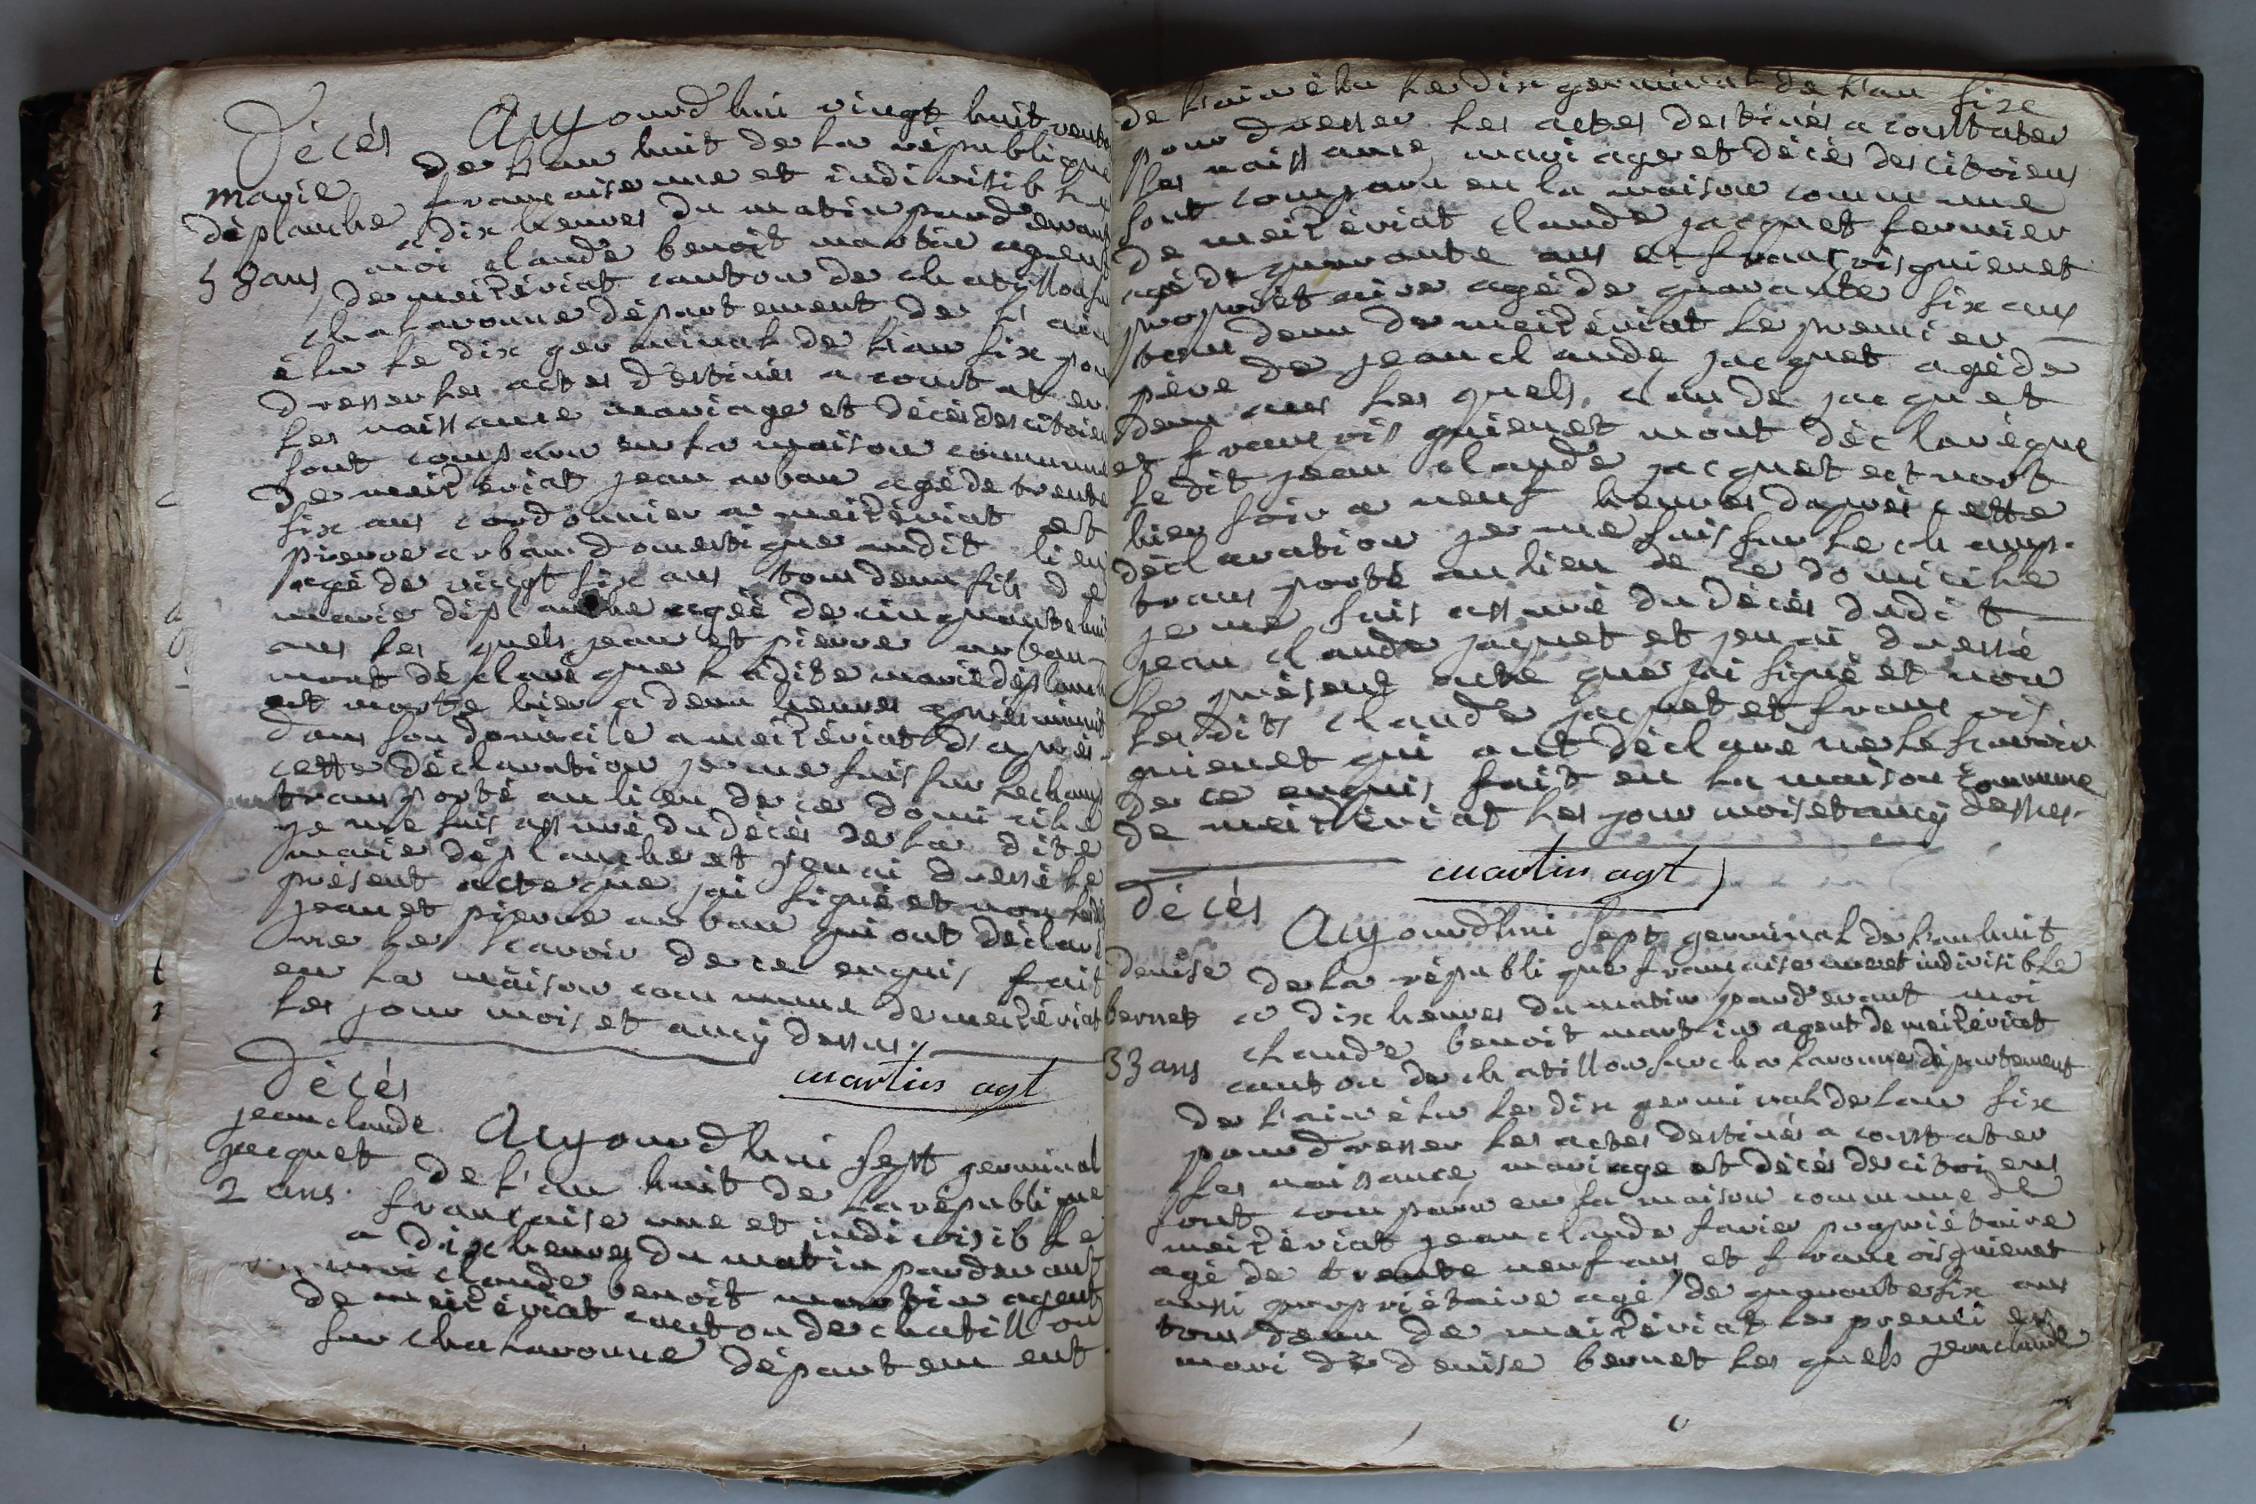 Décés
marie
déplanche
58 ans
Aujourdhui vingt huit vento
de l'an huit de la république
francaise une et indivisible
a dix heures du matin pardevant
moi claude benoit martin agent
de meizériat canton de chatillon su
chalaronne département de l'ain
élu le dix germinal de l'an six pou
dresser les actes destinés a constater
les naissance mariage et décès des citoien
sont comparu en la maison commune
de meizériat jean arban agé de trente
six ans cordonnier a meizériat et
pierre arban domestique audit lieu
agé de vingt six ans tout deux fils de
marie déplanche agée de cinquante huit
ans les quels jean et pierre arban
mont déclaré que ladite marie déplanch
est morte hier a deux heures apres minuit
dans son domicile a meizériat d'après
cette déclaration je me suis sur le champ
transporté au lieu de ce domicile
je me suis assuré du décès de la dite
marie déplanche et j'en ai dressé le
présent acte que jai signé et non lesd
jean et pierre arban qui ont déclaré
ne le scavoir de ce enquis fait
en la maison commune de meizériat
les jour mois et an cy dessus.
martin agt
Décés
jean claude
jacquet
2 ans.
Aujourdhui sept germinal
de l'an huit de la république
francaise une et indivisible
a dix heures du matin pardevant
moi claude benoit martin agent
de meizériat canton de chatillon
sur chalaronne département
de l'ain élu le dix germinal de l'an six
pour dresser les actes destinés a constater
les naissance mariage et décès des citoiens
sont comparu en la maison commune
de meizériat claude jacquet fermier
agé de quarante ans et francois guienet
propriétaire agé de quarante six ans
tout deux de meizériat le premier
père de jean claude jacquet agé de
deux ans les quels claude jacquet
et francois guienet mont déclaré que
le dit jean claude jacquet est mort
hier soir a neuf heures dapres cette
déclaration je me suis sur le champ
transporté au lieu de ce domicile
je me suis assuré du décès dudit
jean claude jaquet et jen ai dressé
le présent acte que jai signé et non
les dits claude jacquet et francois
guienet qui ont déclaré ne le scavoir
de ce enquis fait en la maison commune
de meizériat les jour mois et an cy dessus.
martin agt
Décés
denise
bernet
33 ans
Aujourdhui sept germinal de l'an huit
de la république francaise une et indivisible
a dix heures du matin pardevant moi
claude benoit martin agent de meizériat
canton de chatillon sur chalaronne département
de l'ain élu le dix germinal de lan six
pour dresser les actes destinés a constater
les naissance mariage et décès de citoiens
sont comparu en la maison commune de
meizériat jean claude favier propriétaire
agé de trente neuf ans et francois guienet
aussi propriétaire agé de quarante six ans
tout deux de meizériat le premier
mari de denise bernet les quels jean claude